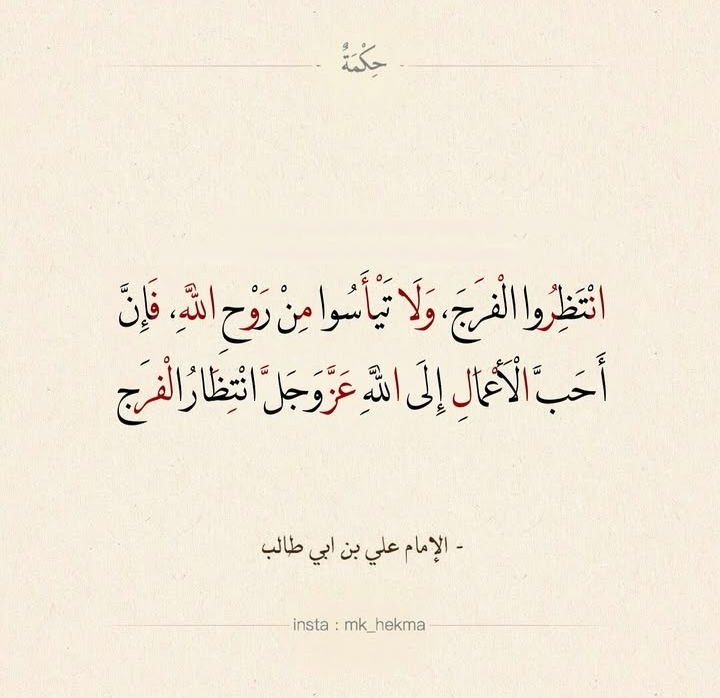 حِكْمَةٌ
انْتَظِرُوا الْفَرَجَ، وَلَا تَيْأَسُوا مِنْ رَوْحِ اللَّهِ، فَإِنَّ
أَحَبَّ الْأَعْمَالِ إِلَى اللَّهِ عَزَّ وَجَلَّ انْتِظَارُ الْفَرَج
- الإمام علي بن ابي طالب
insta : mk_hekma